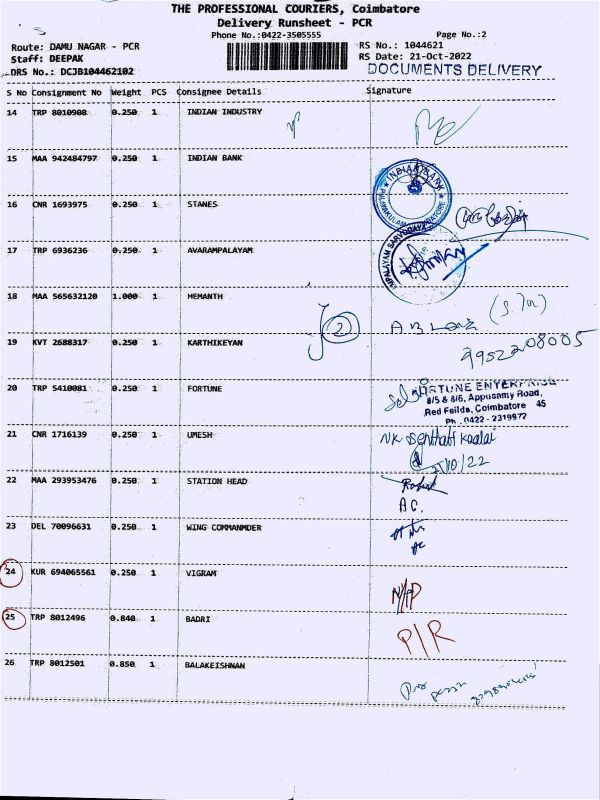 THE PROFESSIONAL COURIERS, Coimbatore
Delivery Runsheet - PCR
Phone No.:0422-3505555 Page No.:2
Route: DAMU NAGAR - PCR RS No.: 1044621
Staff: DEEPAK RS Date: 21-Oct-2022
DRS No.: DCJB104462102 DOCUMENTS DELIVERY
S No Consignment No Weight PCS Consignee Details Signature
14 TRP 8010908 0.250 1 INDIAN INDUSTRY
15 MAA 942484797 0.250 1 INDIAN BANK
INDIAN BANK
16 CNR 1693975 0.250 1 STANES
17 TRP 6936236 0.250 1 AVARAMPALAYAM
18 MAA 565632120 1.000 1 HEMANTH
2
19 KVT 2688317 0.250 1 KARTHIKEYAN
9952208005
20 TRP 5410081 0.250 1 FORTUNE
FORTUNE ENTERPRISE
8/5 & 8/6, Appusamy Road,
Red Feilds, Coimbatore 45
Ph : 0422 - 2319972
21 CNR 1716139 0.250 1 UMESH
22 MAA 293953476 0.250 1 STATION HEAD
A C.
23 DEL 70096631 0.250 1 WING COMMANMDER
24 KUR 694065561 0.250 1 VIGRAM
N/P
25 TRP 8012496 0.840 1 BADRI
P/R
26 TRP 8012501 0.850 1 BALAKEISHNAN